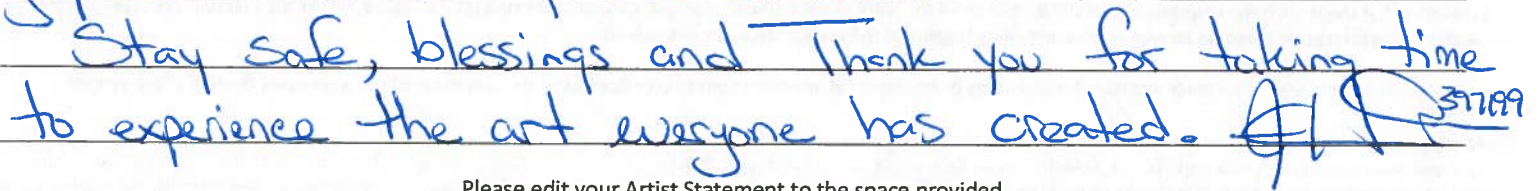 Stay safe, blessings and Thank you for taking time
to experience the art everyone has created.
397199
Please edit your Artist Statement to the space provided